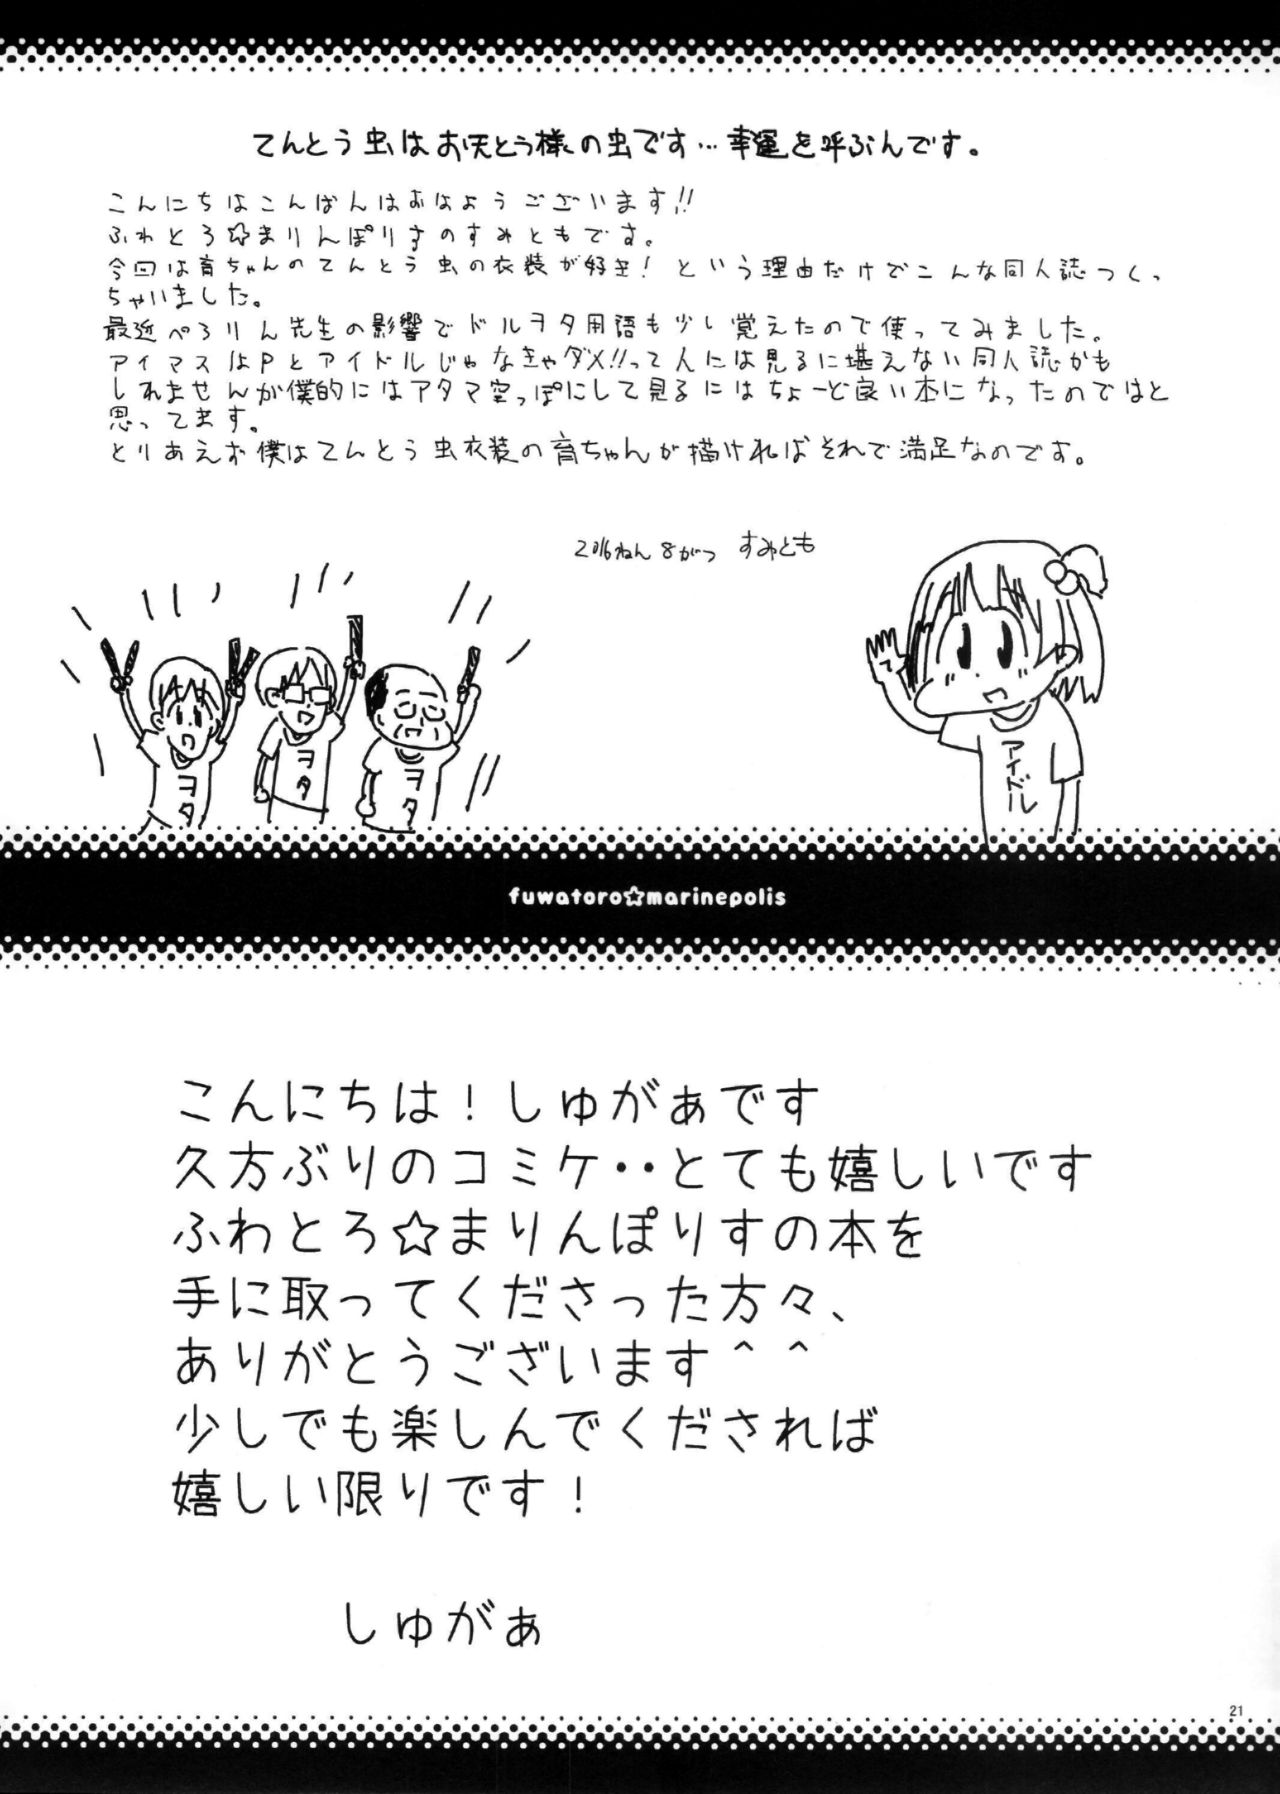 てんとう虫はお天とう様の虫です…幸運を呼ぶんです。
こんにちはこんばんはおはようございます!!
ふわとろ☆まりんぽりすのすみともです。
今回は育ちゃんのてんとう虫の衣装が好き！という理由だけでこんな同人誌つくっ
ちゃいました。
最近ぺろりん先生の影響でドルヲタ用語も少し覚えたので使ってみました。
アイマスはPとアイドルじゃなきゃダメ!!って人には見るに堪えない同人誌かも
しれませんが僕的にはアタマ空っぽにして見るにはちょーど良い本になったのではと
思ってます。
とりあえお僕はてんとう虫衣装の育ちゃんが描ければそれで満足なのです。
2016ねん8がつ すみとも
ヲタ
ヲタ
ヲタ
アイドル
fuwatoro☆marinepolis
こんにちは！しゅがぁです
久方ぶりのコミケ‥とても嬉しいです
ふわとろ☆まりんぽりすの本を
手に取ってくださった方々、
ありがとうございます＾＾
少しでも楽しんでくだされば
嬉しい限りです！
しゅがぁ
21